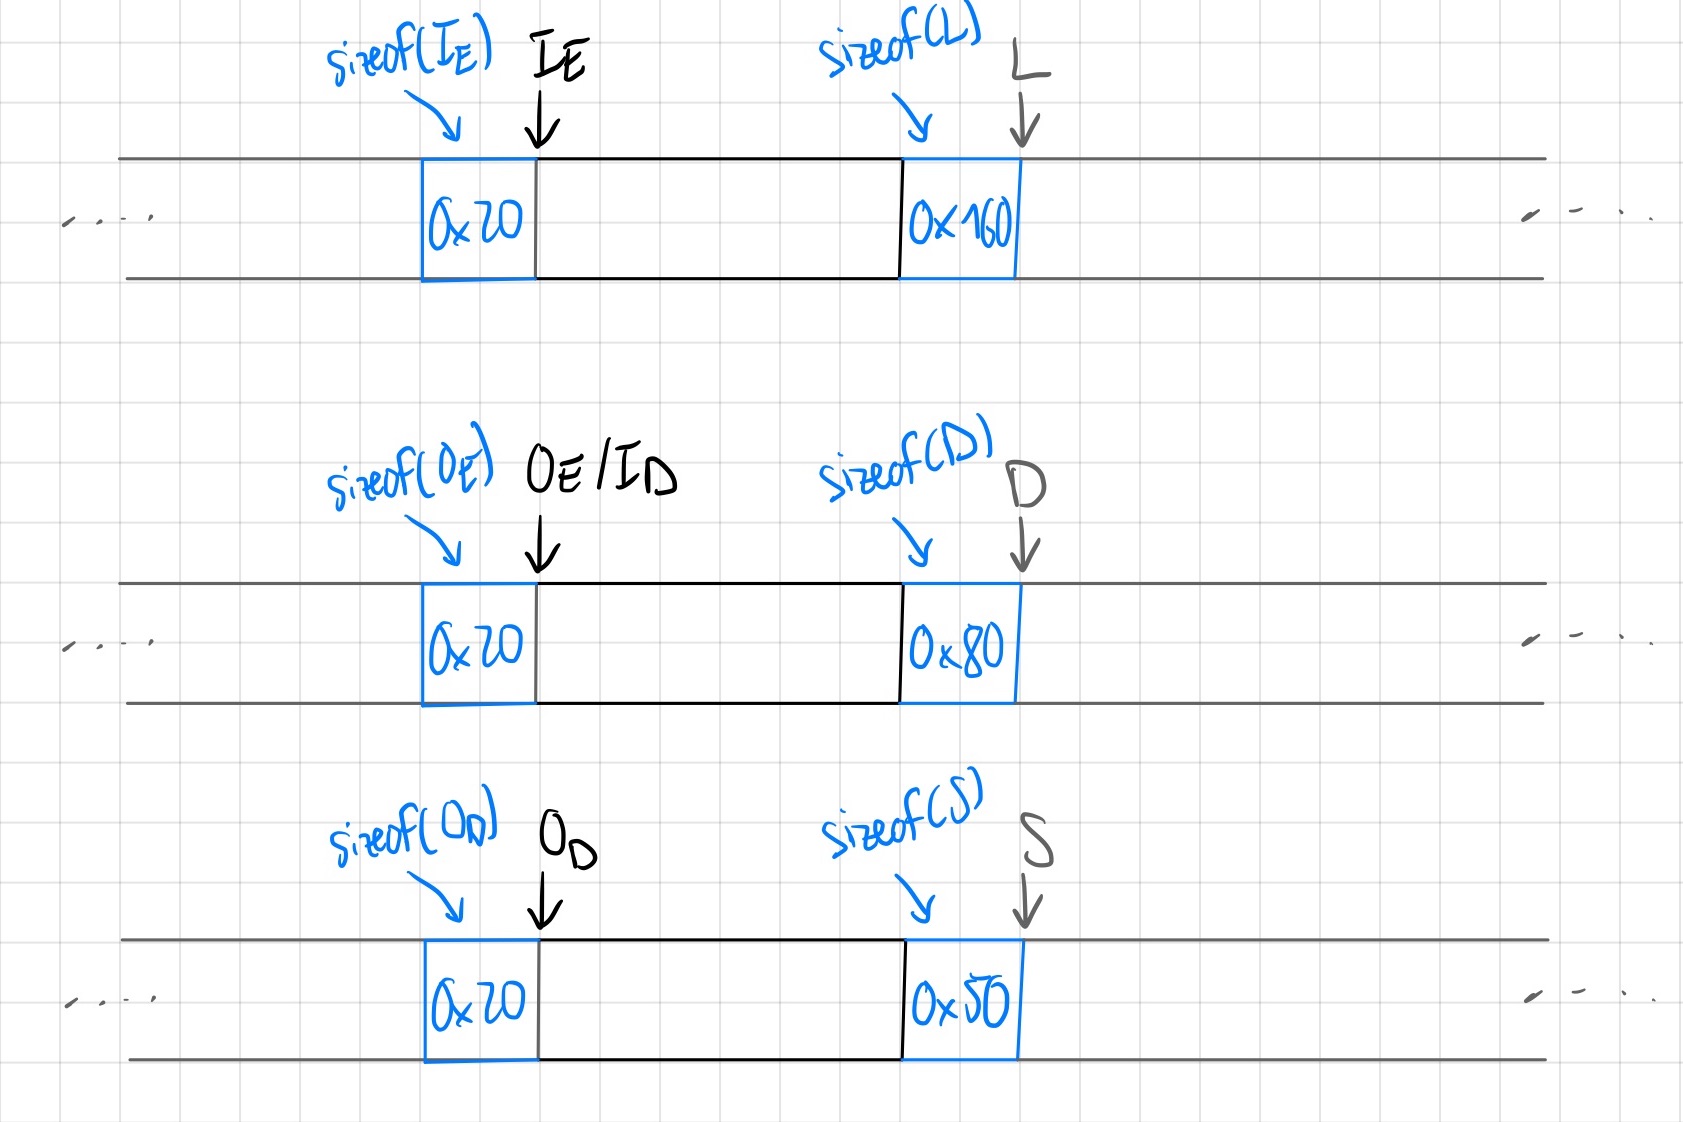 sizeof(IE) IE sizeof(L) L
0x20 0x160
sizeof(OE) OE/ID sizeof(D) D
0x20 0x80
sizeof(OD) OD sizeof(S) S
0x20 0x50